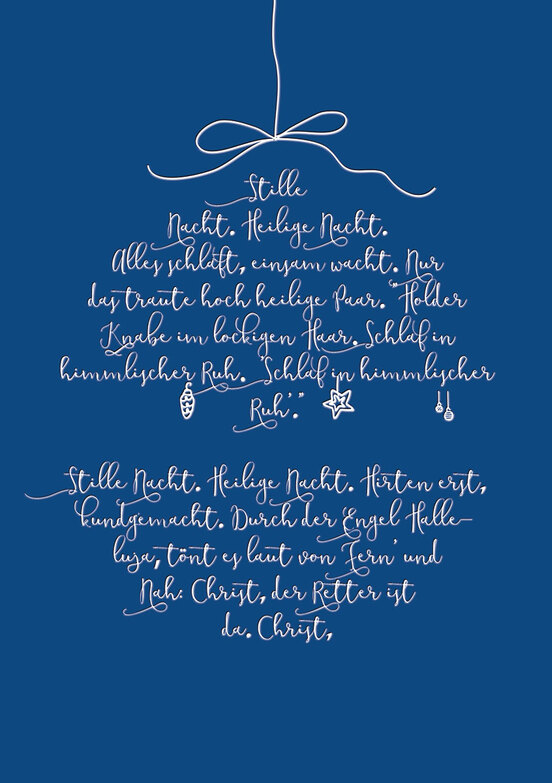 Stille
Nacht. Heilige Nacht.
Alles schläft, einsam wacht. Nur
das traute hoch heilige Paar. "Holder
Knabe im lockigen Haar. Schlaf in
himmlischer Ruh. 'Schlaf in himmlischer
Ruh'."
Stille Nacht. Heilige Nacht. Hirten erst,
kundgemacht. Durch der Engel Halle-
luja, tönt es laut von Fern' und
Nah: Christ, der Retter ist
da. Christ,